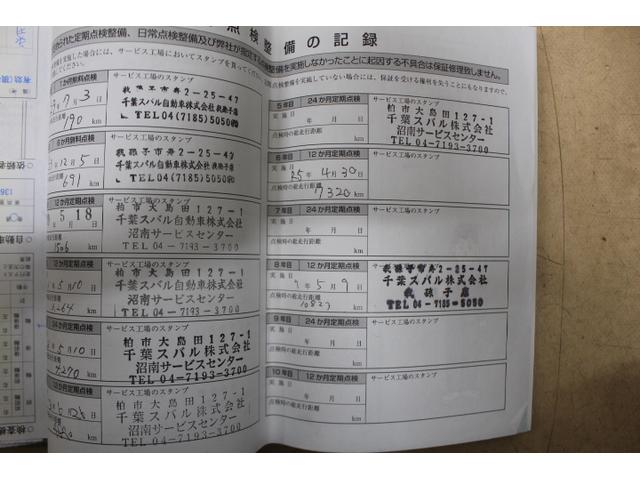 点検整備の記録
れた定期点検整備、日常点検整備及び弊社が指定する
整備を実施しなかったことに起因する不具合は保証修理致しません。
を実施した場合には、サービス工場においてスタンプを貰ってください。
点検整備を実施していない場合には、保証を受ける権利を失うこともありますので、
無料点検
サービス工場のスタンプ
7月3日
190 km
我孫子市寿2-25-47
千葉スバル自動車株式会社 我孫子店
TEL04(7185)5050
6か月無料点検
サービス工場のスタンプ
12月5日
691 km
我孫子市寿2-25-47
千葉スバル自動車株式会社 我孫子店
TEL04(7185)5050
12か月定期点検
サービス工場のスタンプ
5 18
1506 km
柏市大島田127-1
千葉スバル自動車株式会社
沼南サービスセンター
TEL04-7193-3700
か月定期点検
サービス工場のスタンプ
5月10日
264 km
柏市大島田127-1
千葉スバル自動車株式会社
沼南サービスセンター
TEL04-7193-3700
12か月定期点検
サービス工場のスタンプ
5月10日
4290 km
柏市大島田127-1
千葉スバル株式会社
沼南サービスセンター
TEL04-7193-3700
12か月定期点検
サービス工場のスタンプ
日
km
柏市大島田127-1
千葉スバル株式会社
沼南サービスセンター
TEL04-7193-3700
5年目 24か月定期点検
サービス工場のスタンプ
実施日
年 月 日
点検時の総走行距離
km
柏市大島田127-1
千葉スバル株式会社
沼南サービスセンター
TEL04-7193-3700
6年目 12か月定期点検
実施日
25年4月30日
点検時の総走行距離
7320 km
7年目 24か月定期点検
サービス工場のスタンプ
実施日
年 月 日
点検時の総走行距離
km
8年目 12か月定期点検
サービス工場のスタンプ
実施日
年5月9日
点検時の総走行距離
10827 km
我孫子市寿2-25-47
千葉スバル株式会社
我孫子店
TEL04-7185-5050
9年目 24か月定期点検
サービス工場のスタンプ
実施日
年 月 日
点検時の総走行距離
km
10年目 12か月定期点検
サービス工場のスタンプ
実施日
年 月 日
点検時の総走行距離
km